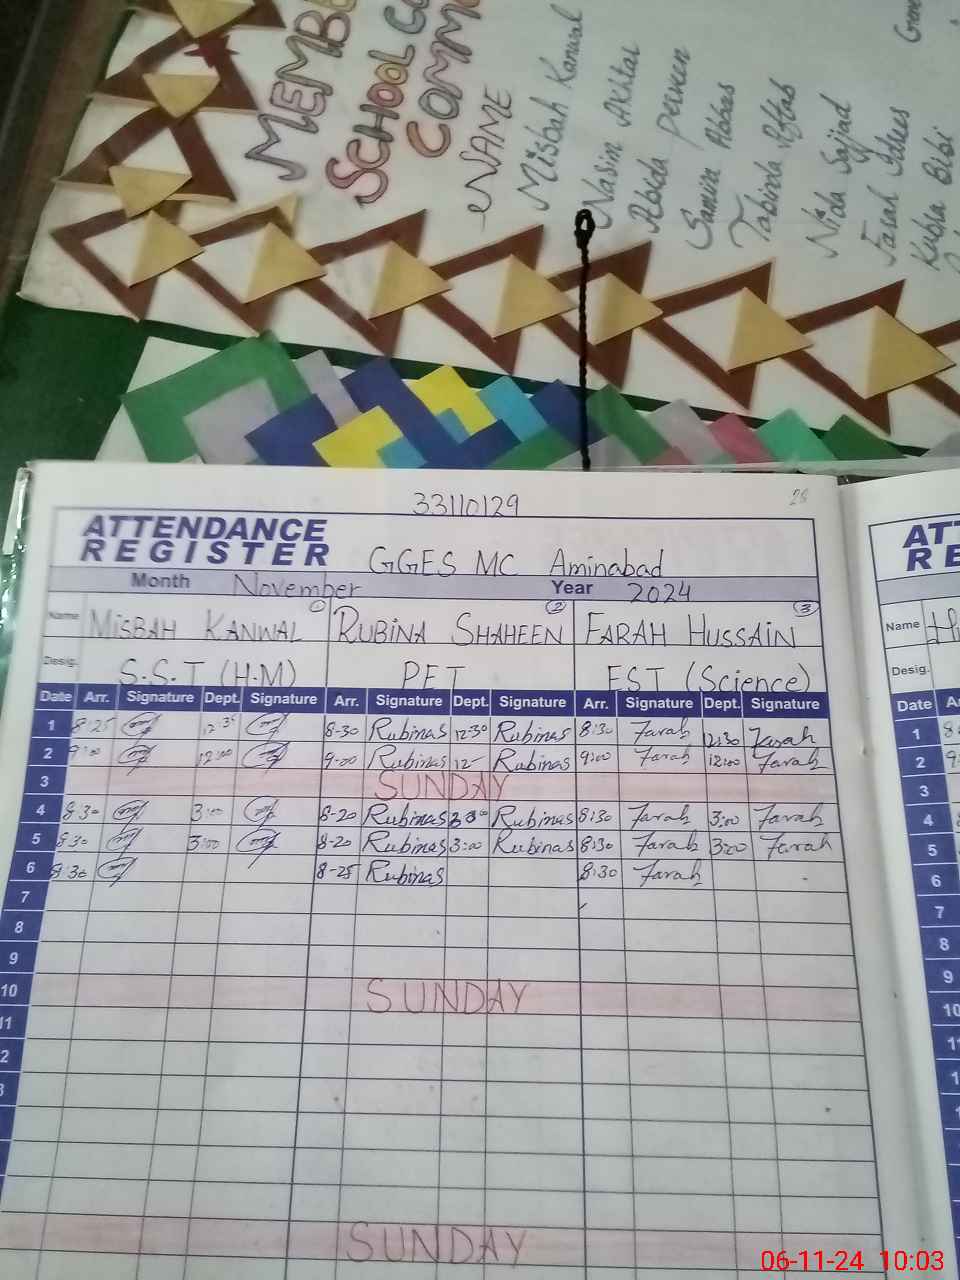 MEMB
SCHOOL C
COMM
NAME
Misbah Kanwal
Nasim Akhtar
Abida perveen
Samira Abbas
Tabinda Iftab
Nida Sajjad
Farah Idees
Kubra Bibi
33110129
28
ATTENDANCE
REGISTER GGES MC Aminabad
Month November Year 2024
Name MISBAH KANWAL 1 RUBINA SHAHEEN 2 FARAH HUSSAIN 3
Desig. S.S.T (H.M) PET EST (Science)
Date Arr. Signature Dept. Signature Arr. Signature Dept. Signature Arr. Signature Dept. Signature
1 8:25 12:35 8-30 Rubinas 12-30 Rubinas 8:30 Farah 12:30 Farah
2 9:00 12:00 9-00 Rubinas 12- Rubinas 9:00 Farah 12:00 Farah
3 SUNDAY
4 8:30 3:00 8-20 Rubinas 3:00 Rubinas 8:30 Farah 3:00 Farah
5 8:30 3:00 8-20 Rubinas 3:00 Rubinas 8:30 Farah 3:00 Farah
6 8:30 8-25 Rubinas 8:30 Farah
7
8
9
10 SUNDAY
11
2
3
SUNDAY
AT
RE
Name
Desig.
Date A
1
2
3
4
5
6
7
8
9
10
11
06-11-24 10:03